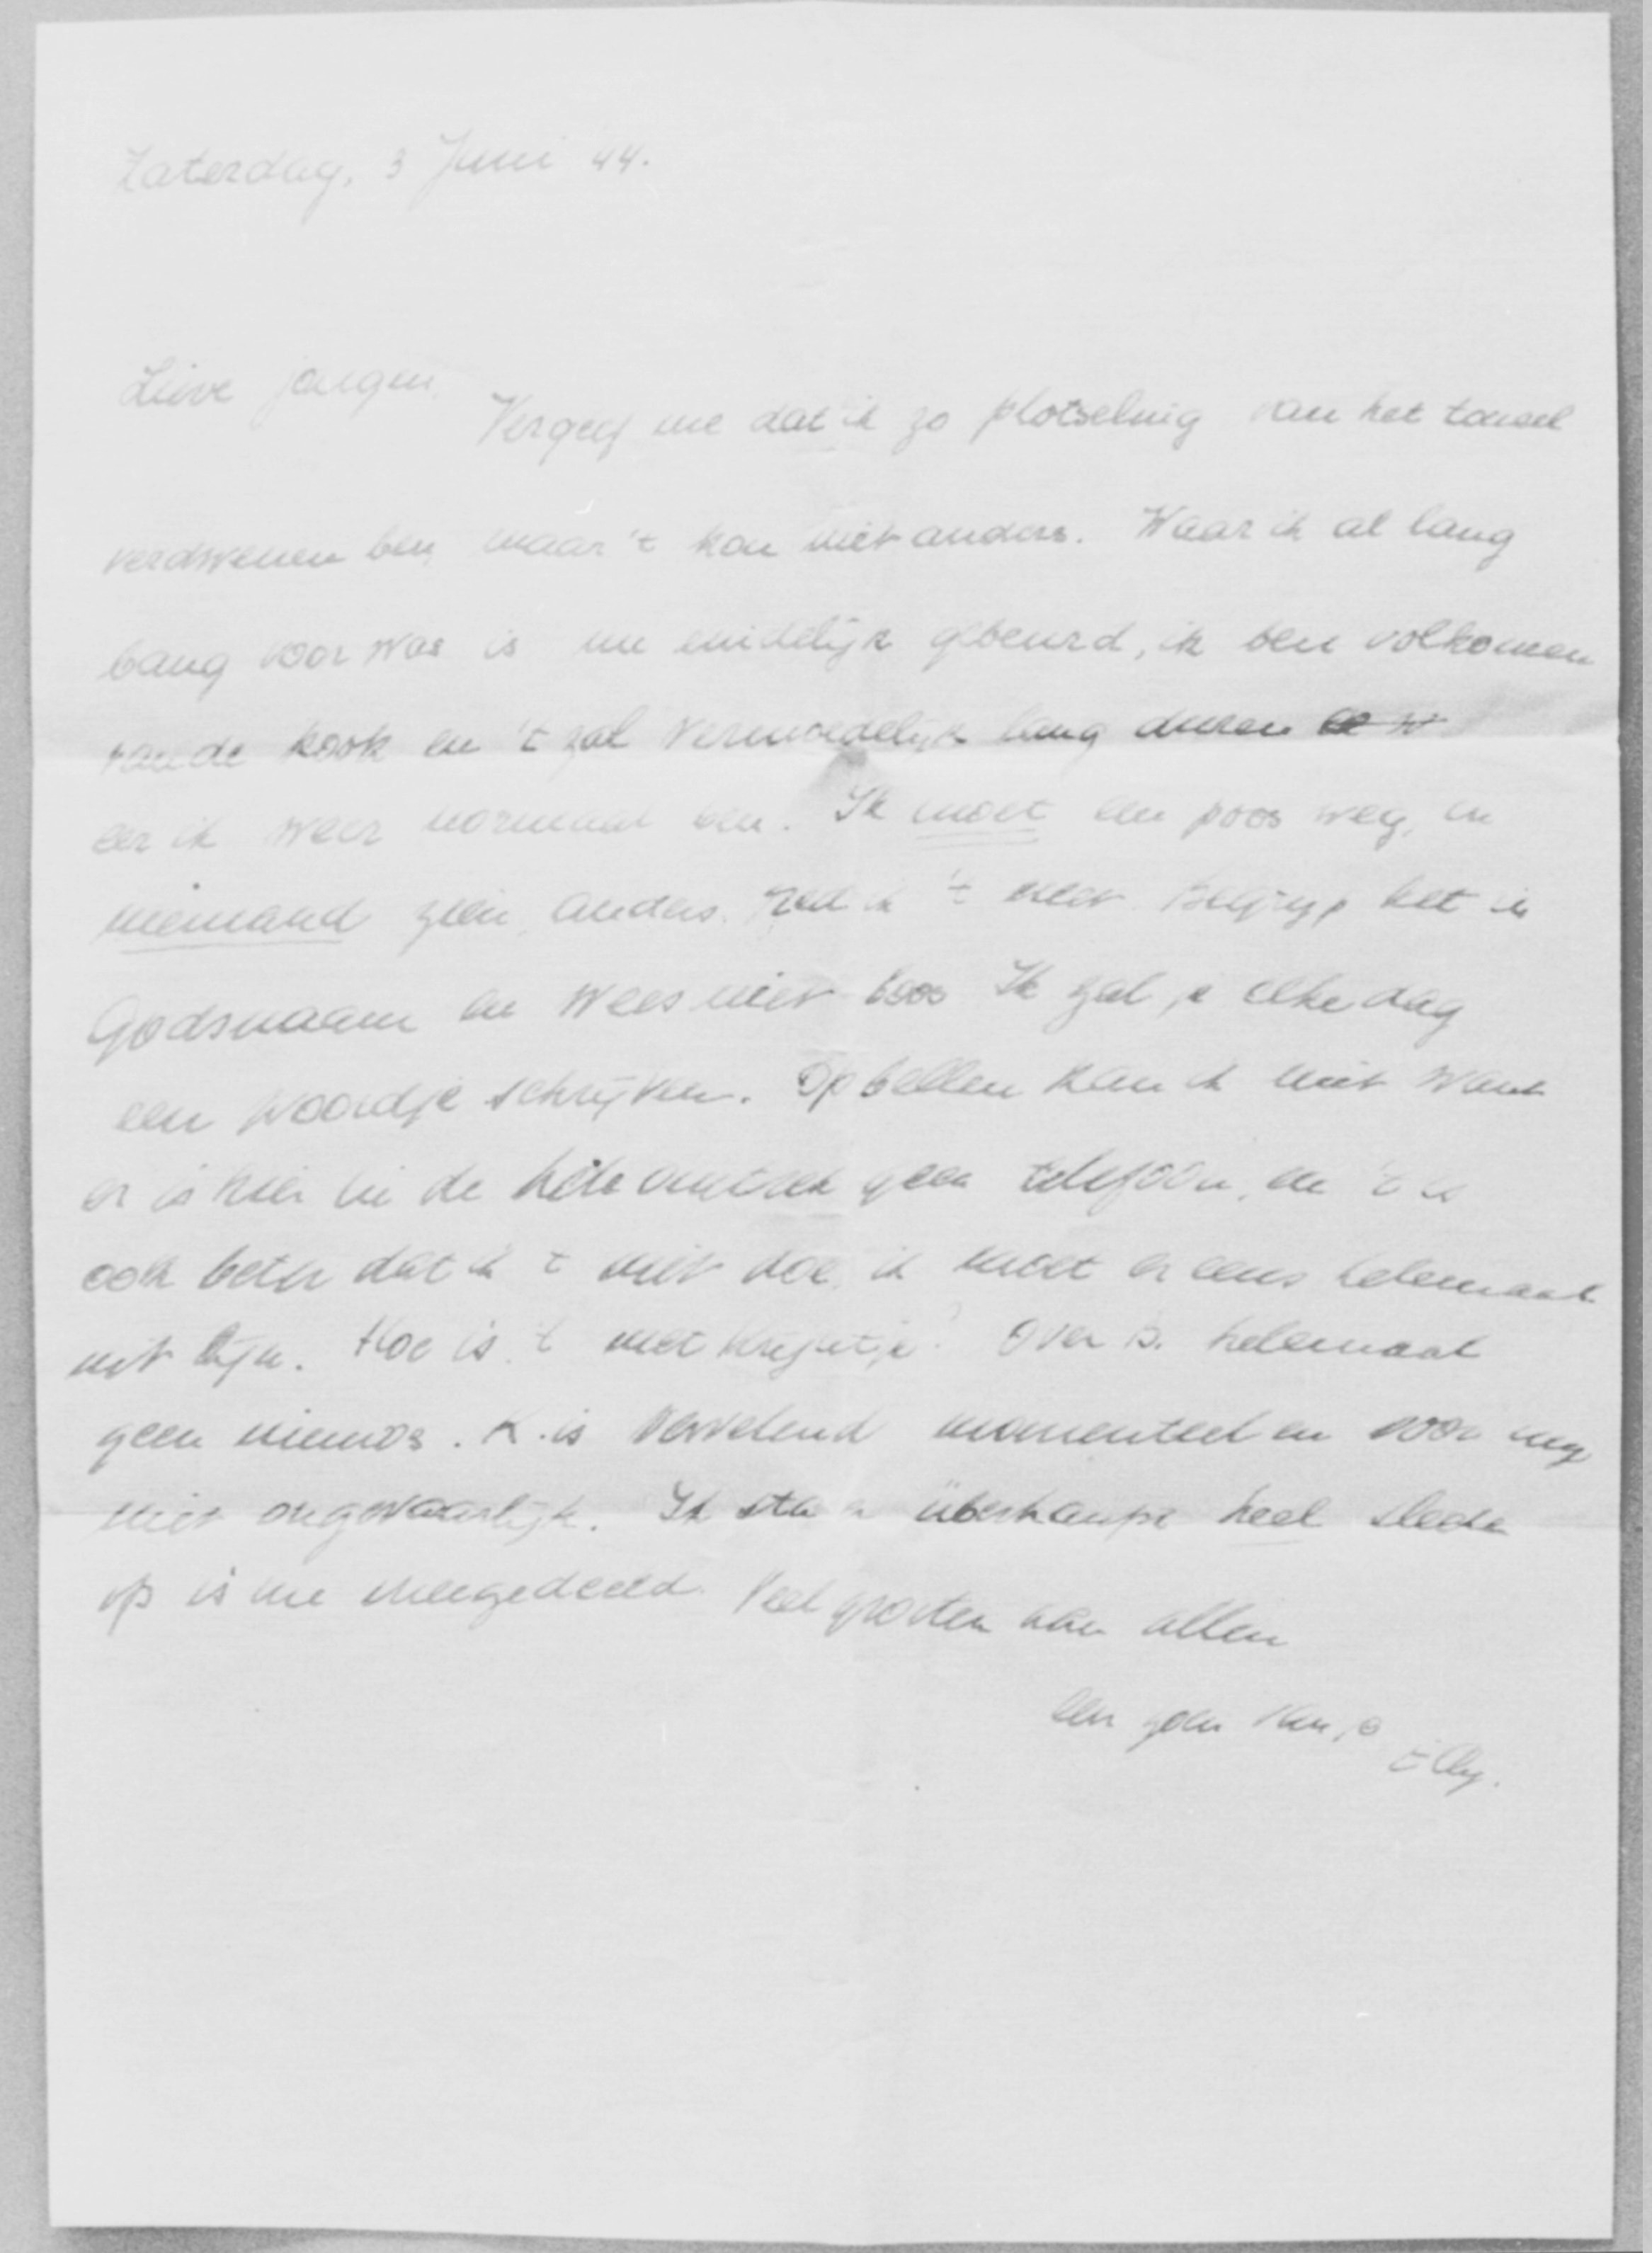 Zaterdag, 3 Juni '44.
Lieve jongen,
Vergeef me dat ik zo plotseling van het toneel
verdwenen ben, maar 't kon niet anders. Waar ik al lang
bang voor was is nu eindelijk gebeurd, ik ben volkomen
van de kook en 't zal vermoedelijk lang duren
eer ik weer normaal ben. Ik moet een poos weg, en
niemand zien, anders red ik 't niet. Begrijp het in
Godsnaam en wees niet boos. Ik zal je elke dag
een woordje schrijven. Opbellen kan ik niet want
er is hier in de hele omtrek geen telefoon, en 't is
ook beter dat ik 't niet doe, ik moet er eens helemaal
uit zijn. Hoe is 't met Krijntje? Over B. helemaal
geen nieuws. K. is vervelend momenteel en voor mij
niet ongevaarlijk. Ik sta er überhaupt heel slecht
op is me meegedeeld. Veel groeten aan allen
een zoen van je
Elly.